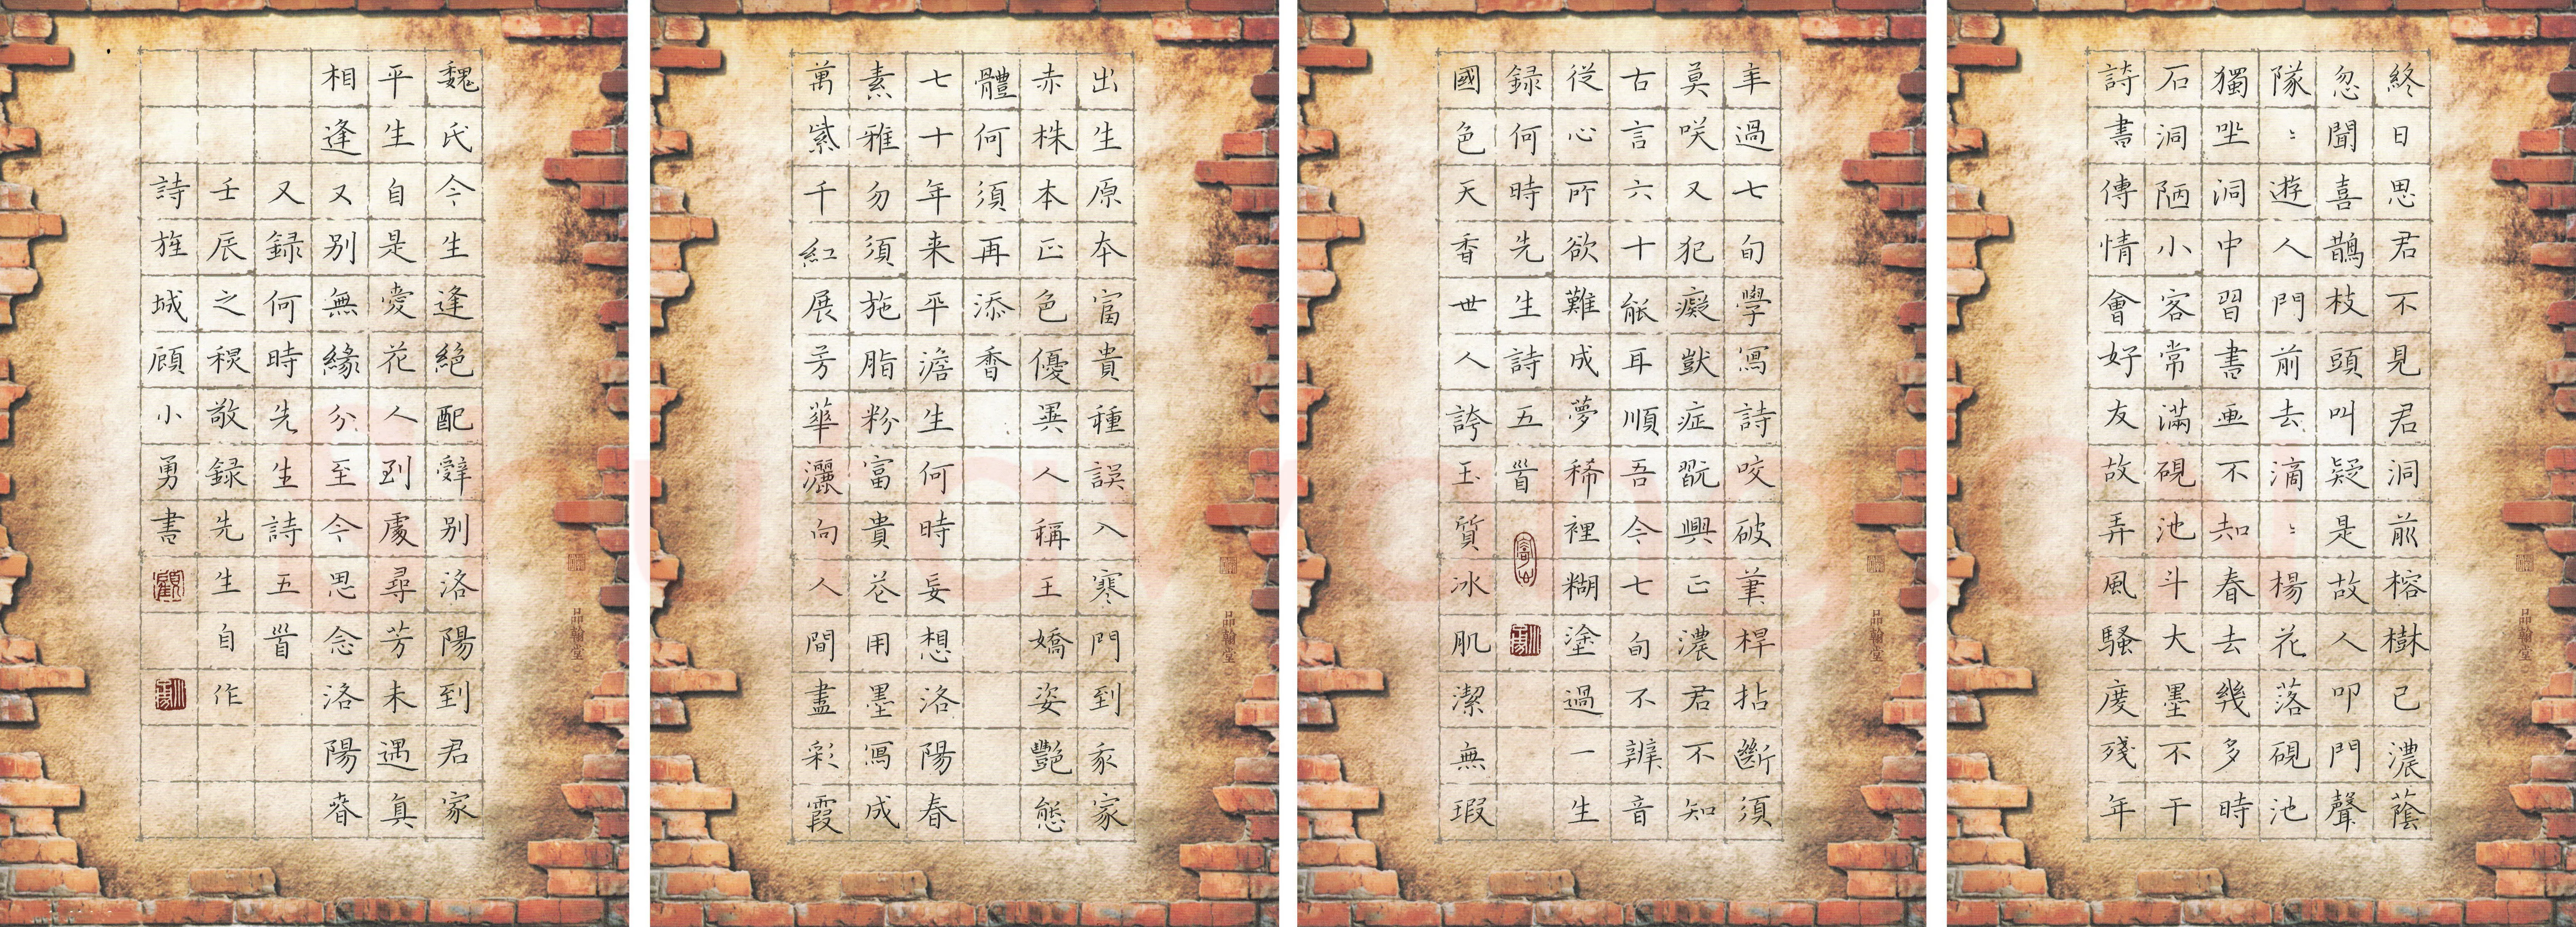 終日思君不見君洞前榕樹已濃蔭
忽聞喜鵲枝頭叫疑是故人叩門聲
隊〻遊人門前去滴〻楊花落硯池
獨坐洞中習書画不知春去幾多時
石洞陋小客常滿硯池斗大墨不干
詩書傳情會好友故弄風騷度殘年
品翰堂
年過七旬學寫詩咬破筆桿拈斷須
莫咲又犯癡獃症翫興正濃君不知
古言六十能耳順吾今七旬不辨音
從心所欲難成夢稀裡糊塗過一生
録何時先生詩五首
國色天香世人誇玉質冰肌潔無瑕
品翰堂
出生原本富貴種誤入寒門到家
赤株本正色優異人稱王嬌姿艷態
體何須再添香
七十年来平澹生何時妄想洛陽春
素雅勿須施脂粉富貴花用墨寫成
萬紫千紅展芳華灑向人間盡彩霞
品翰堂
魏氏今生逢絕配辭别洛陽到君家
平生自是愛花人到處尋芳未遇真
相逢又别無緣分至今思念洛陽春
又録何時先生詩五首
壬辰之稷敬録先生自作
詩旌城顧小勇書